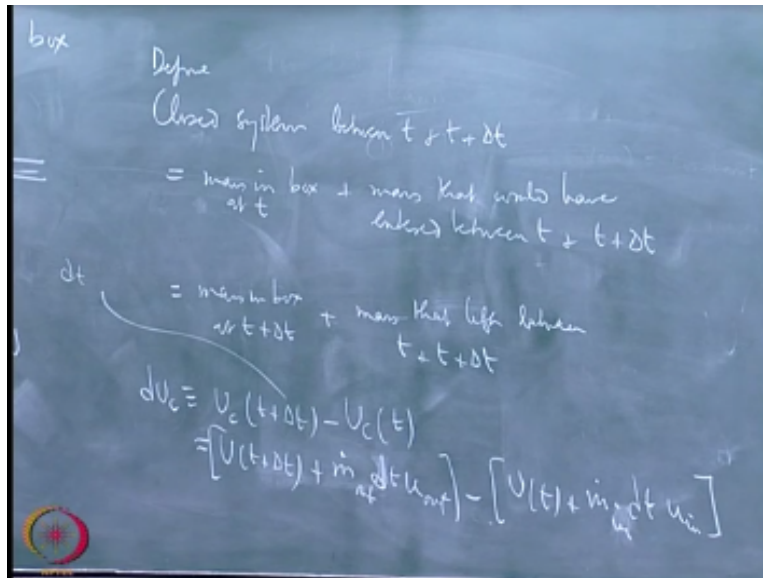 box
Define
Closed system between t & t + Δt
= mass in box + mass that would have
at t
entered between t & t + Δt
dt
= mass in box + mass that left between
at t + Δt
t & t + Δt
dU_c ≡ U_c(t+Δt) - U_c(t)
= [U(t+Δt) + ṁ_out dt u_out] - [U(t) + ṁ_in dt u_in]